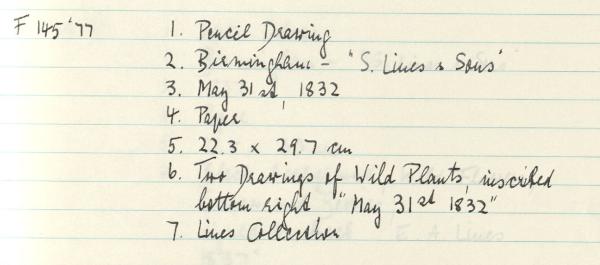 F 145'77 1. Pencil Drawing
2. Birmingham - "S. Lines & Sons"
3. May 31st, 1832
4. Paper
5. 22.3 x 29.7 cm
6. Two Drawings of Wild Plants, inscribed
bottom right "May 31st 1832"
7. Lines Collection